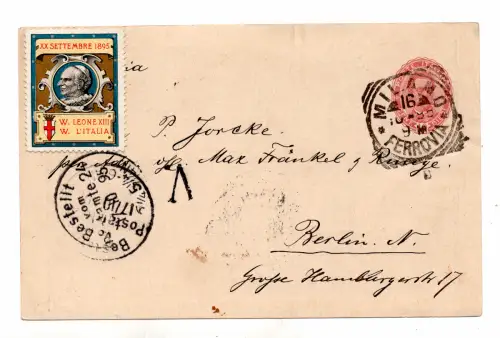 XX SETTEMBRE 1895
W. LEONE XIII
W. L'ITALIA
MILANO
16
9 M
FERROVIA
P. Jorcke.
Max Fränkel & Runge.
Berlin. N.
Große Hamburgerstr 17
Bestellt
vom
Postamte 24
17/10 95
V